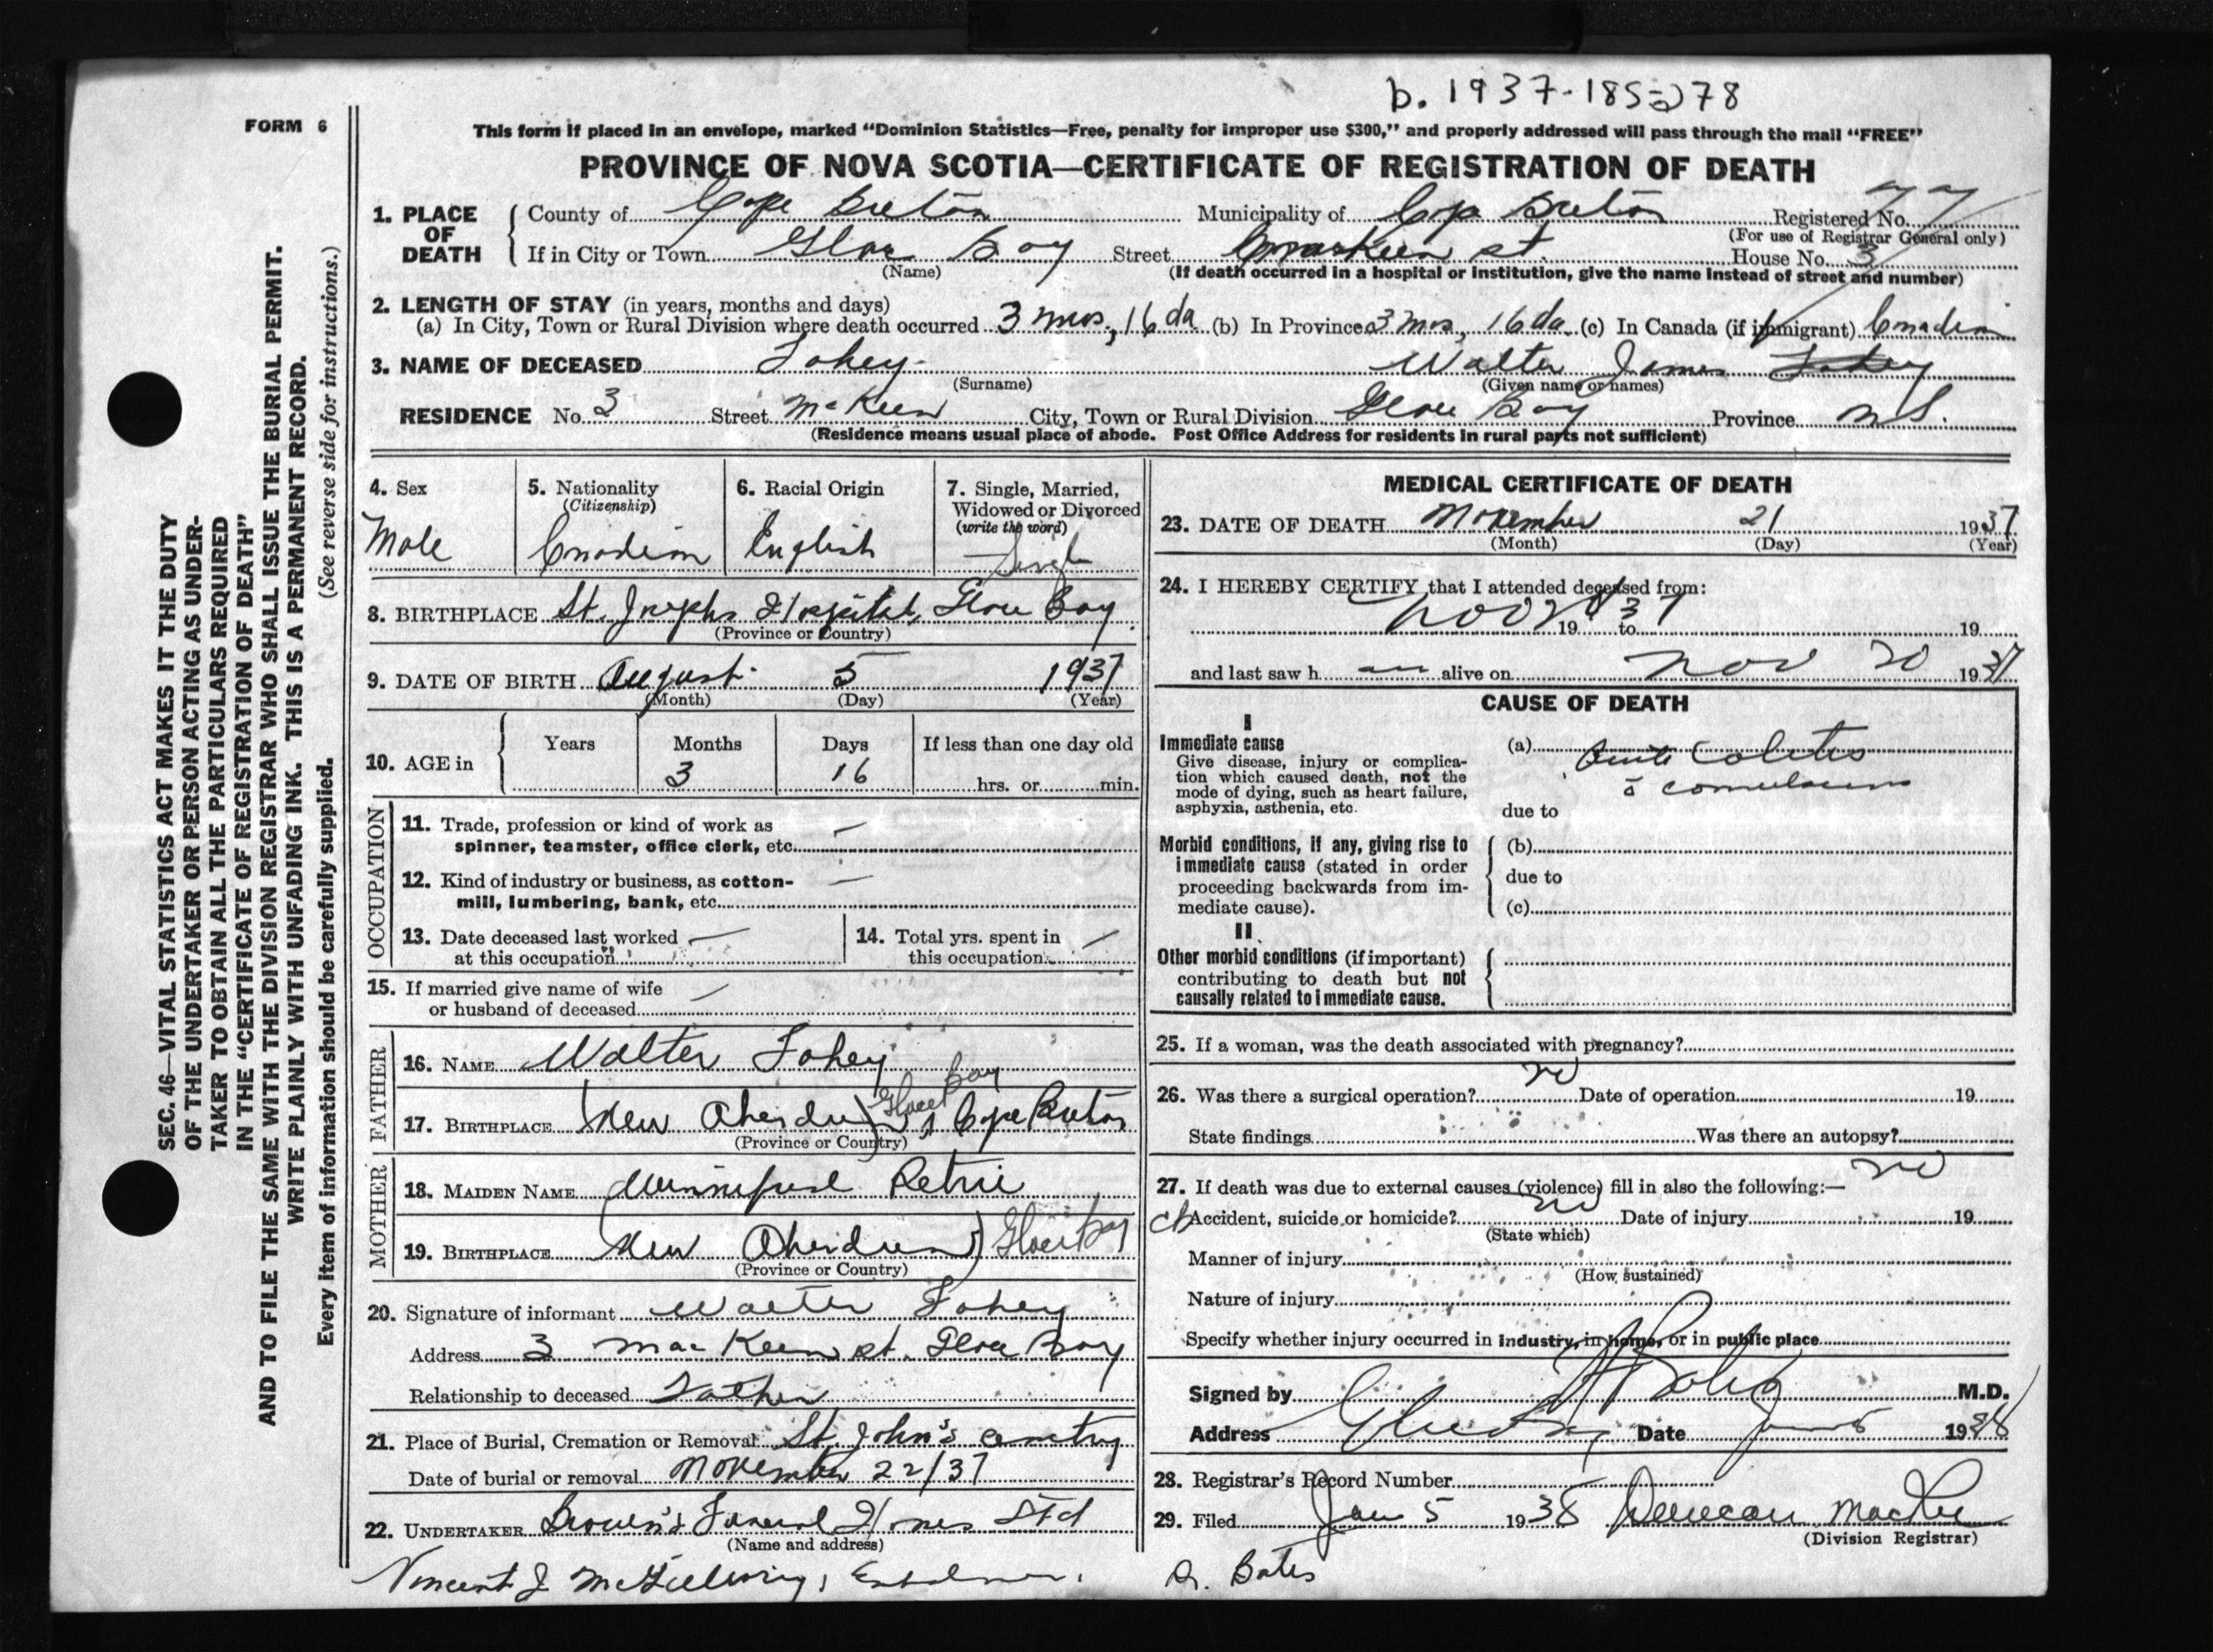 b. 1937-185278
FORM 6
This form if placed in an envelope, marked "Dominion Statistics—Free, penalty for improper use $300," and properly addressed will pass through the mail "FREE"
PROVINCE OF NOVA SCOTIA—CERTIFICATE OF REGISTRATION OF DEATH
1. PLACE OF DEATH County of Cape Breton Municipality of Cape Breton Registered No.
(For use of Registrar General only)
If in City or Town Glace Bay Street St. House No. 3
(Name) (If death occurred in a hospital or institution, give the name instead of street and number)
2. LENGTH OF STAY (in years, months and days)
(a) In City, Town or Rural Division where death occurred 3 mos, 16 da (b) In Province 3 mos, 16 da (c) In Canada (if immigrant) Canadian
3. NAME OF DECEASED Fahey Walter James Fahey
(Surname) (Given name or names)
RESIDENCE No. 3 Street McKeen City, Town or Rural Division Glace Bay Province N.S.
(Residence means usual place of abode. Post Office Address for residents in rural parts not sufficient)
4. Sex
Male
5. Nationality
(Citizenship)
Canadian
6. Racial Origin
English
7. Single, Married, Widowed or Divorced
(write the word)
Single
8. BIRTHPLACE St. Josephs Hospital, Glace Bay
(Province or Country)
9. DATE OF BIRTH August 5 1937
(Month) (Day) (Year)
10. AGE in Years Months Days If less than one day old
3 16 hrs. or min.
OCCUPATION
11. Trade, profession or kind of work as
spinner, teamster, office clerk, etc. —
12. Kind of industry or business, as cotton-
mill, lumbering, bank, etc. —
13. Date deceased last worked
at this occupation —
14. Total yrs. spent in
this occupation —
15. If married give name of wife
or husband of deceased —
FATHER
16. NAME Walter Fahey
17. BIRTHPLACE New Aberdeen, Glace Bay Cape Breton
(Province or Country)
MOTHER
18. MAIDEN NAME Petrie
19. BIRTHPLACE New Aberdeen Glace Bay
(Province or Country)
20. Signature of informant Walter Fahey
Address 3 MacKeen st. Glace Bay
Relationship to deceased Father
21. Place of Burial, Cremation or Removal St. John's cemetry
Date of burial or removal November 22/37
22. UNDERTAKER Funeral Homes Ltd
(Name and address)
Vincent J
MEDICAL CERTIFICATE OF DEATH
23. DATE OF DEATH November 21 1937
(Month) (Day) (Year)
24. I HEREBY CERTIFY that I attended deceased from:
Nov 19 to 19
and last saw h alive on Nov 20 1937
CAUSE OF DEATH
I
Immediate cause
Give disease, injury or complica-
tion which caused death, not the
mode of dying, such as heart failure,
asphyxia, asthenia, etc.
(a) Acute Colitis
c̄ convulsions
due to
Morbid conditions, if any, giving rise to
immediate cause (stated in order
proceeding backwards from im-
mediate cause).
(b)
due to
(c)
II
Other morbid conditions (if important)
contributing to death but not
causally related to immediate cause.
25. If a woman, was the death associated with pregnancy?
26. Was there a surgical operation? no Date of operation 19
State findings Was there an autopsy? no
27. If death was due to external causes (violence) fill in also the following:—
Accident, suicide or homicide? no Date of injury 19
(State which)
Manner of injury
(How sustained)
Nature of injury
Specify whether injury occurred in industry, in home, or in public place
Signed by M.D.
Address Date 1938
28. Registrar's Record Number
29. Filed Jan 5 1938 Duncan
(Division Registrar)
Dr. Bates
SEC. 46—VITAL STATISTICS ACT MAKES IT THE DUTY
OF THE UNDERTAKER OR PERSON ACTING AS UNDER-
TAKER TO OBTAIN ALL THE PARTICULARS REQUIRED
IN THE "CERTIFICATE OF REGISTRATION OF DEATH"
AND TO FILE THE SAME WITH THE DIVISION REGISTRAR WHO SHALL ISSUE THE BURIAL PERMIT.
WRITE PLAINLY WITH UNFADING INK. THIS IS A PERMANENT RECORD.
Every item of information should be carefully supplied. (See reverse side for instructions.)